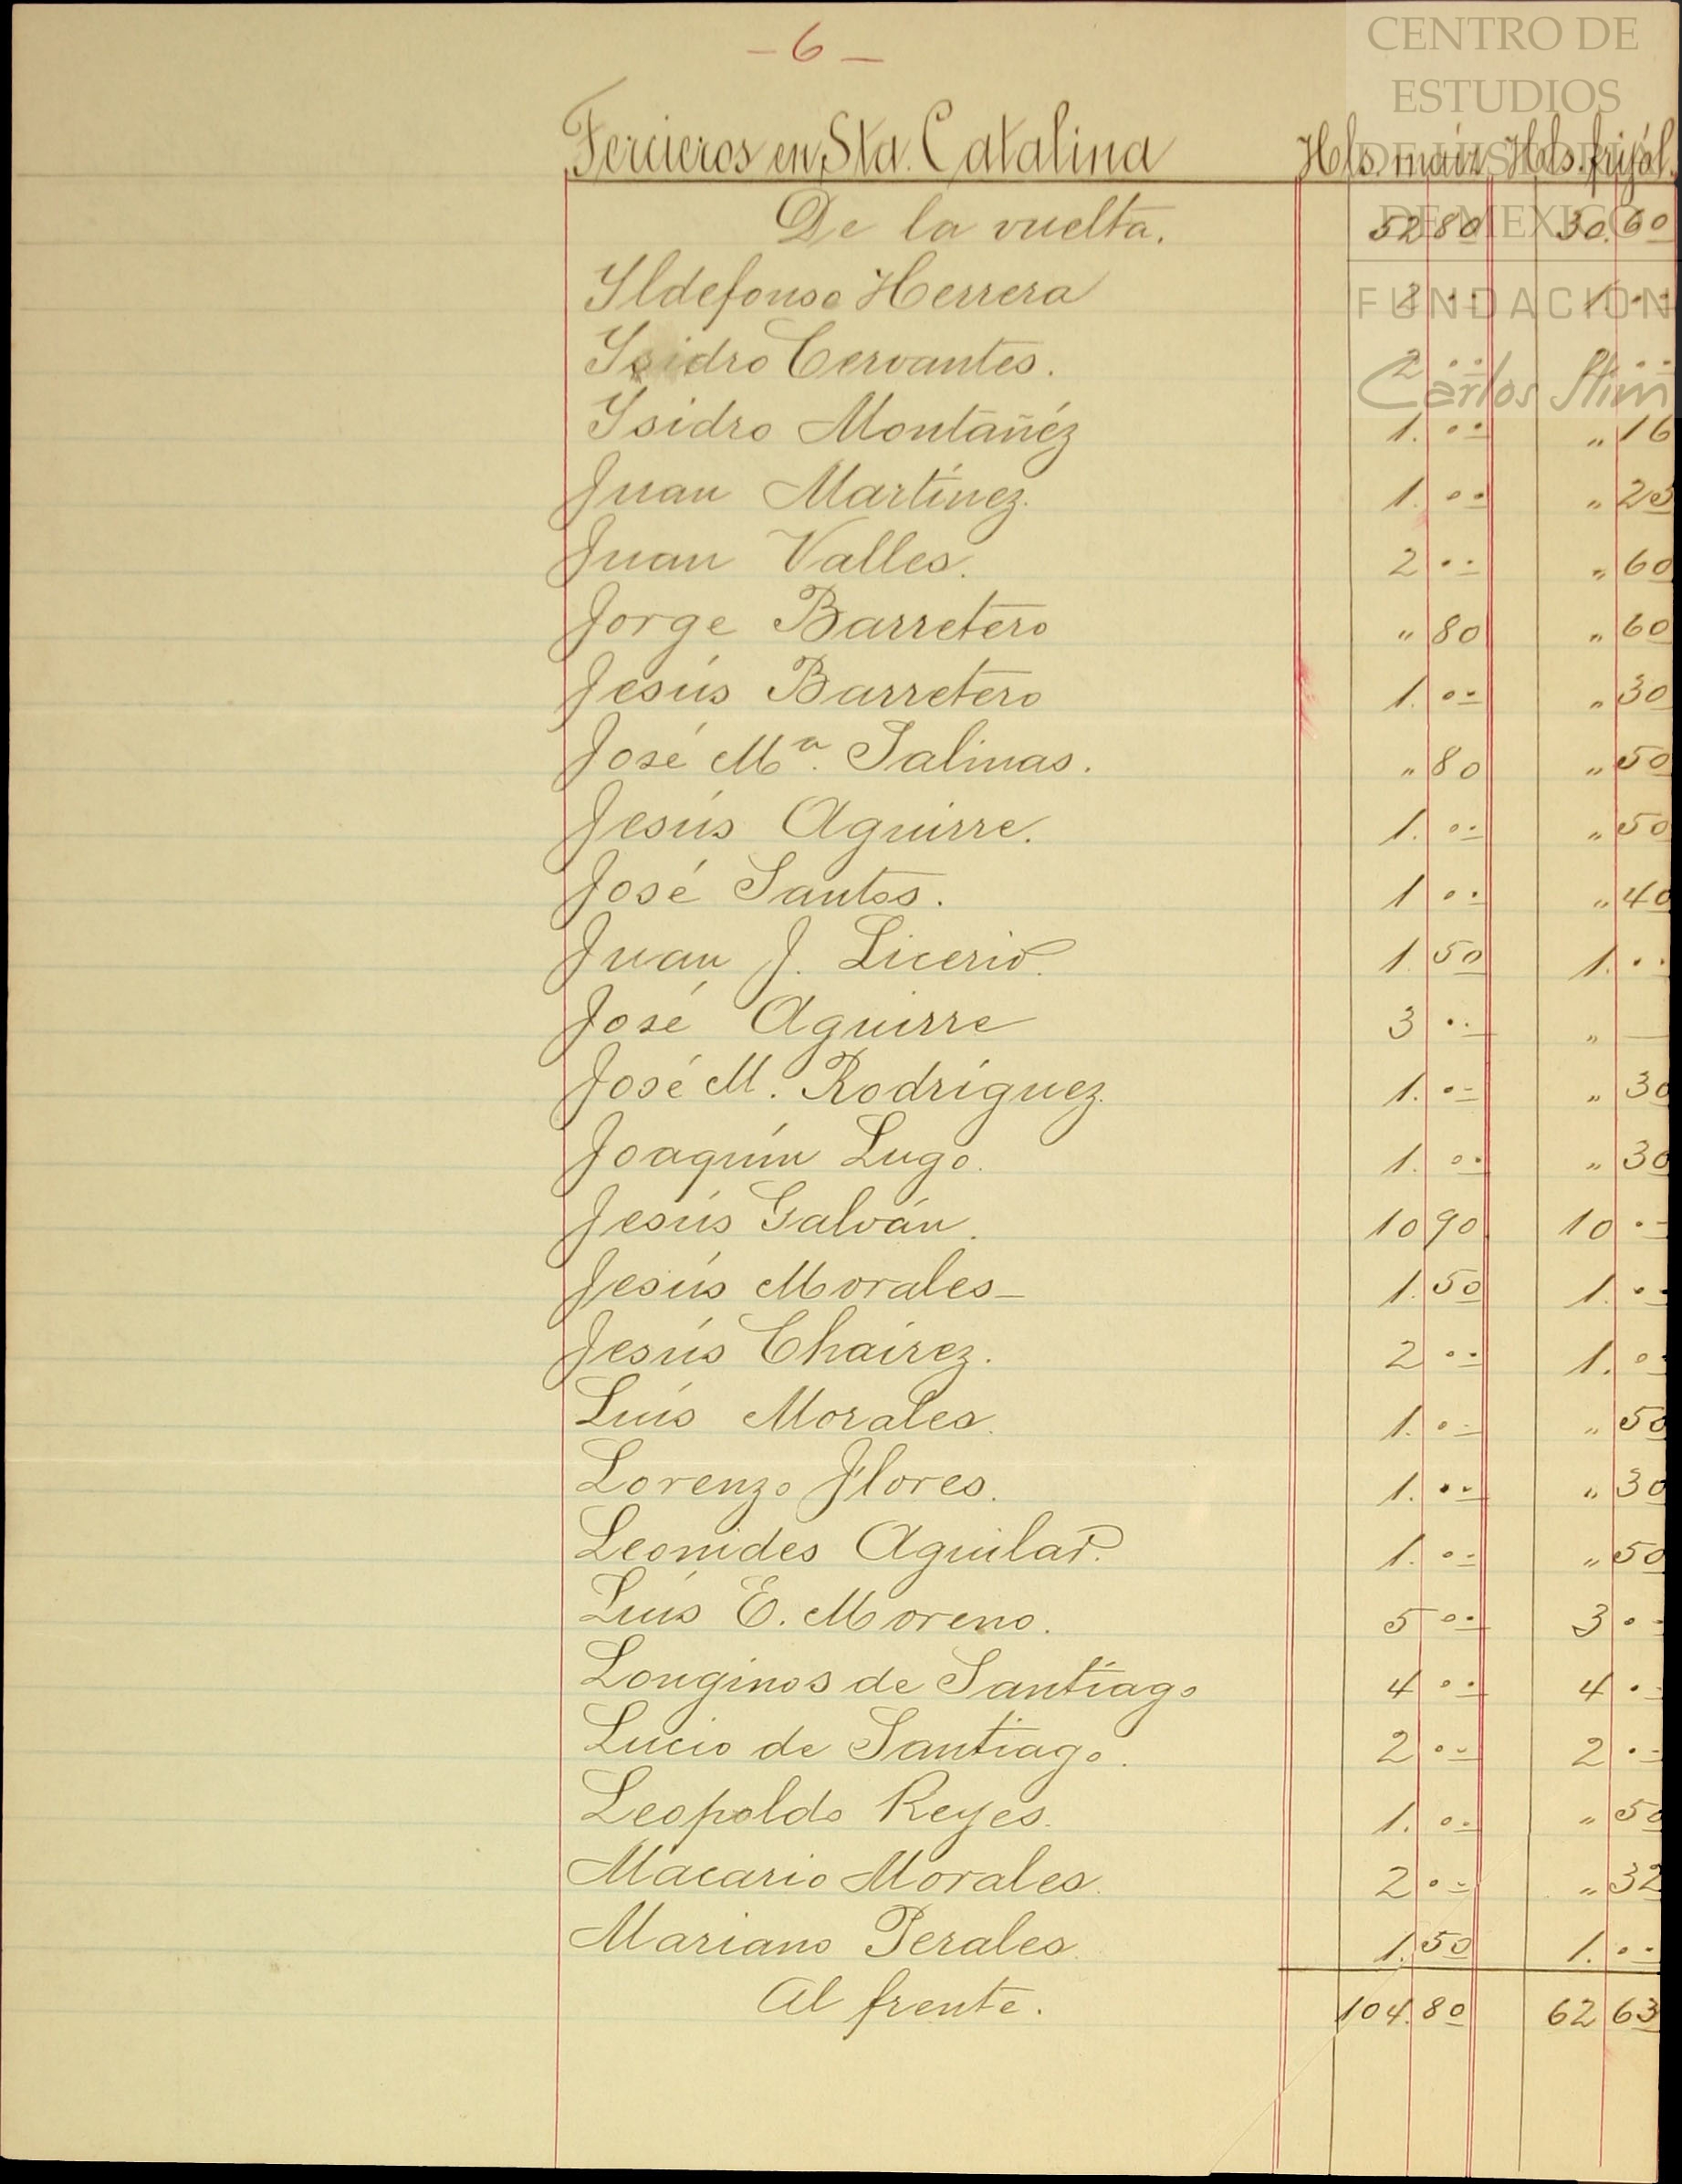 - 6 -
Tercieros en Sta. Catalina Hls. maíz Hls. frijol.
De la vuelta. 52 80 30. 60
Yldefonso Herrera 2 .. 1 ..
Ysidro Cervantes. 2 .. 2 ..
Ysidro Montañéz 1. .. " 16
Juan Martínez. 1. .. " 25
Juan Valles. 2 .. " 60
Jorge Barretero " 80 " 60
Jesús Barretero 1. .. " 30
José Mª. Salinas. " 80 " 50
Jesús Aguirre. 1. .. " 50
José Santos. 1 .. " 40
Juan J. Licerio. 1 50 1. ..
José Aguirre 3 .. " —
José M. Rodríguez. 1. .. " 30
Joaquín Lugo. 1. .. " 30
Jesús Galván. 10 90 10 ..
Jesús Morales- 1. 50 1. ..
Jesús Chairez. 2 .. 1. ..
Luís Morales. 1. .. " 50
Lorenzo Flores. 1. .. " 30
Leonides Aguilar. 1. .. " 50
Luís E. Moreno. 5 .. 3 ..
Longinos de Santiago 4 .. 4 ..
Lucio de Santiago. 2 .. 2 ..
Leopoldo Reyes. 1. .. " 50
Macario Morales. 2 .. " 32
Mariano Perales. 1. 50 1. ..
Al frente. 104. 80 62 63
CENTRO DE
ESTUDIOS
DE HISTORIA
DE MEXICO
FUNDACION
Carlos Slim